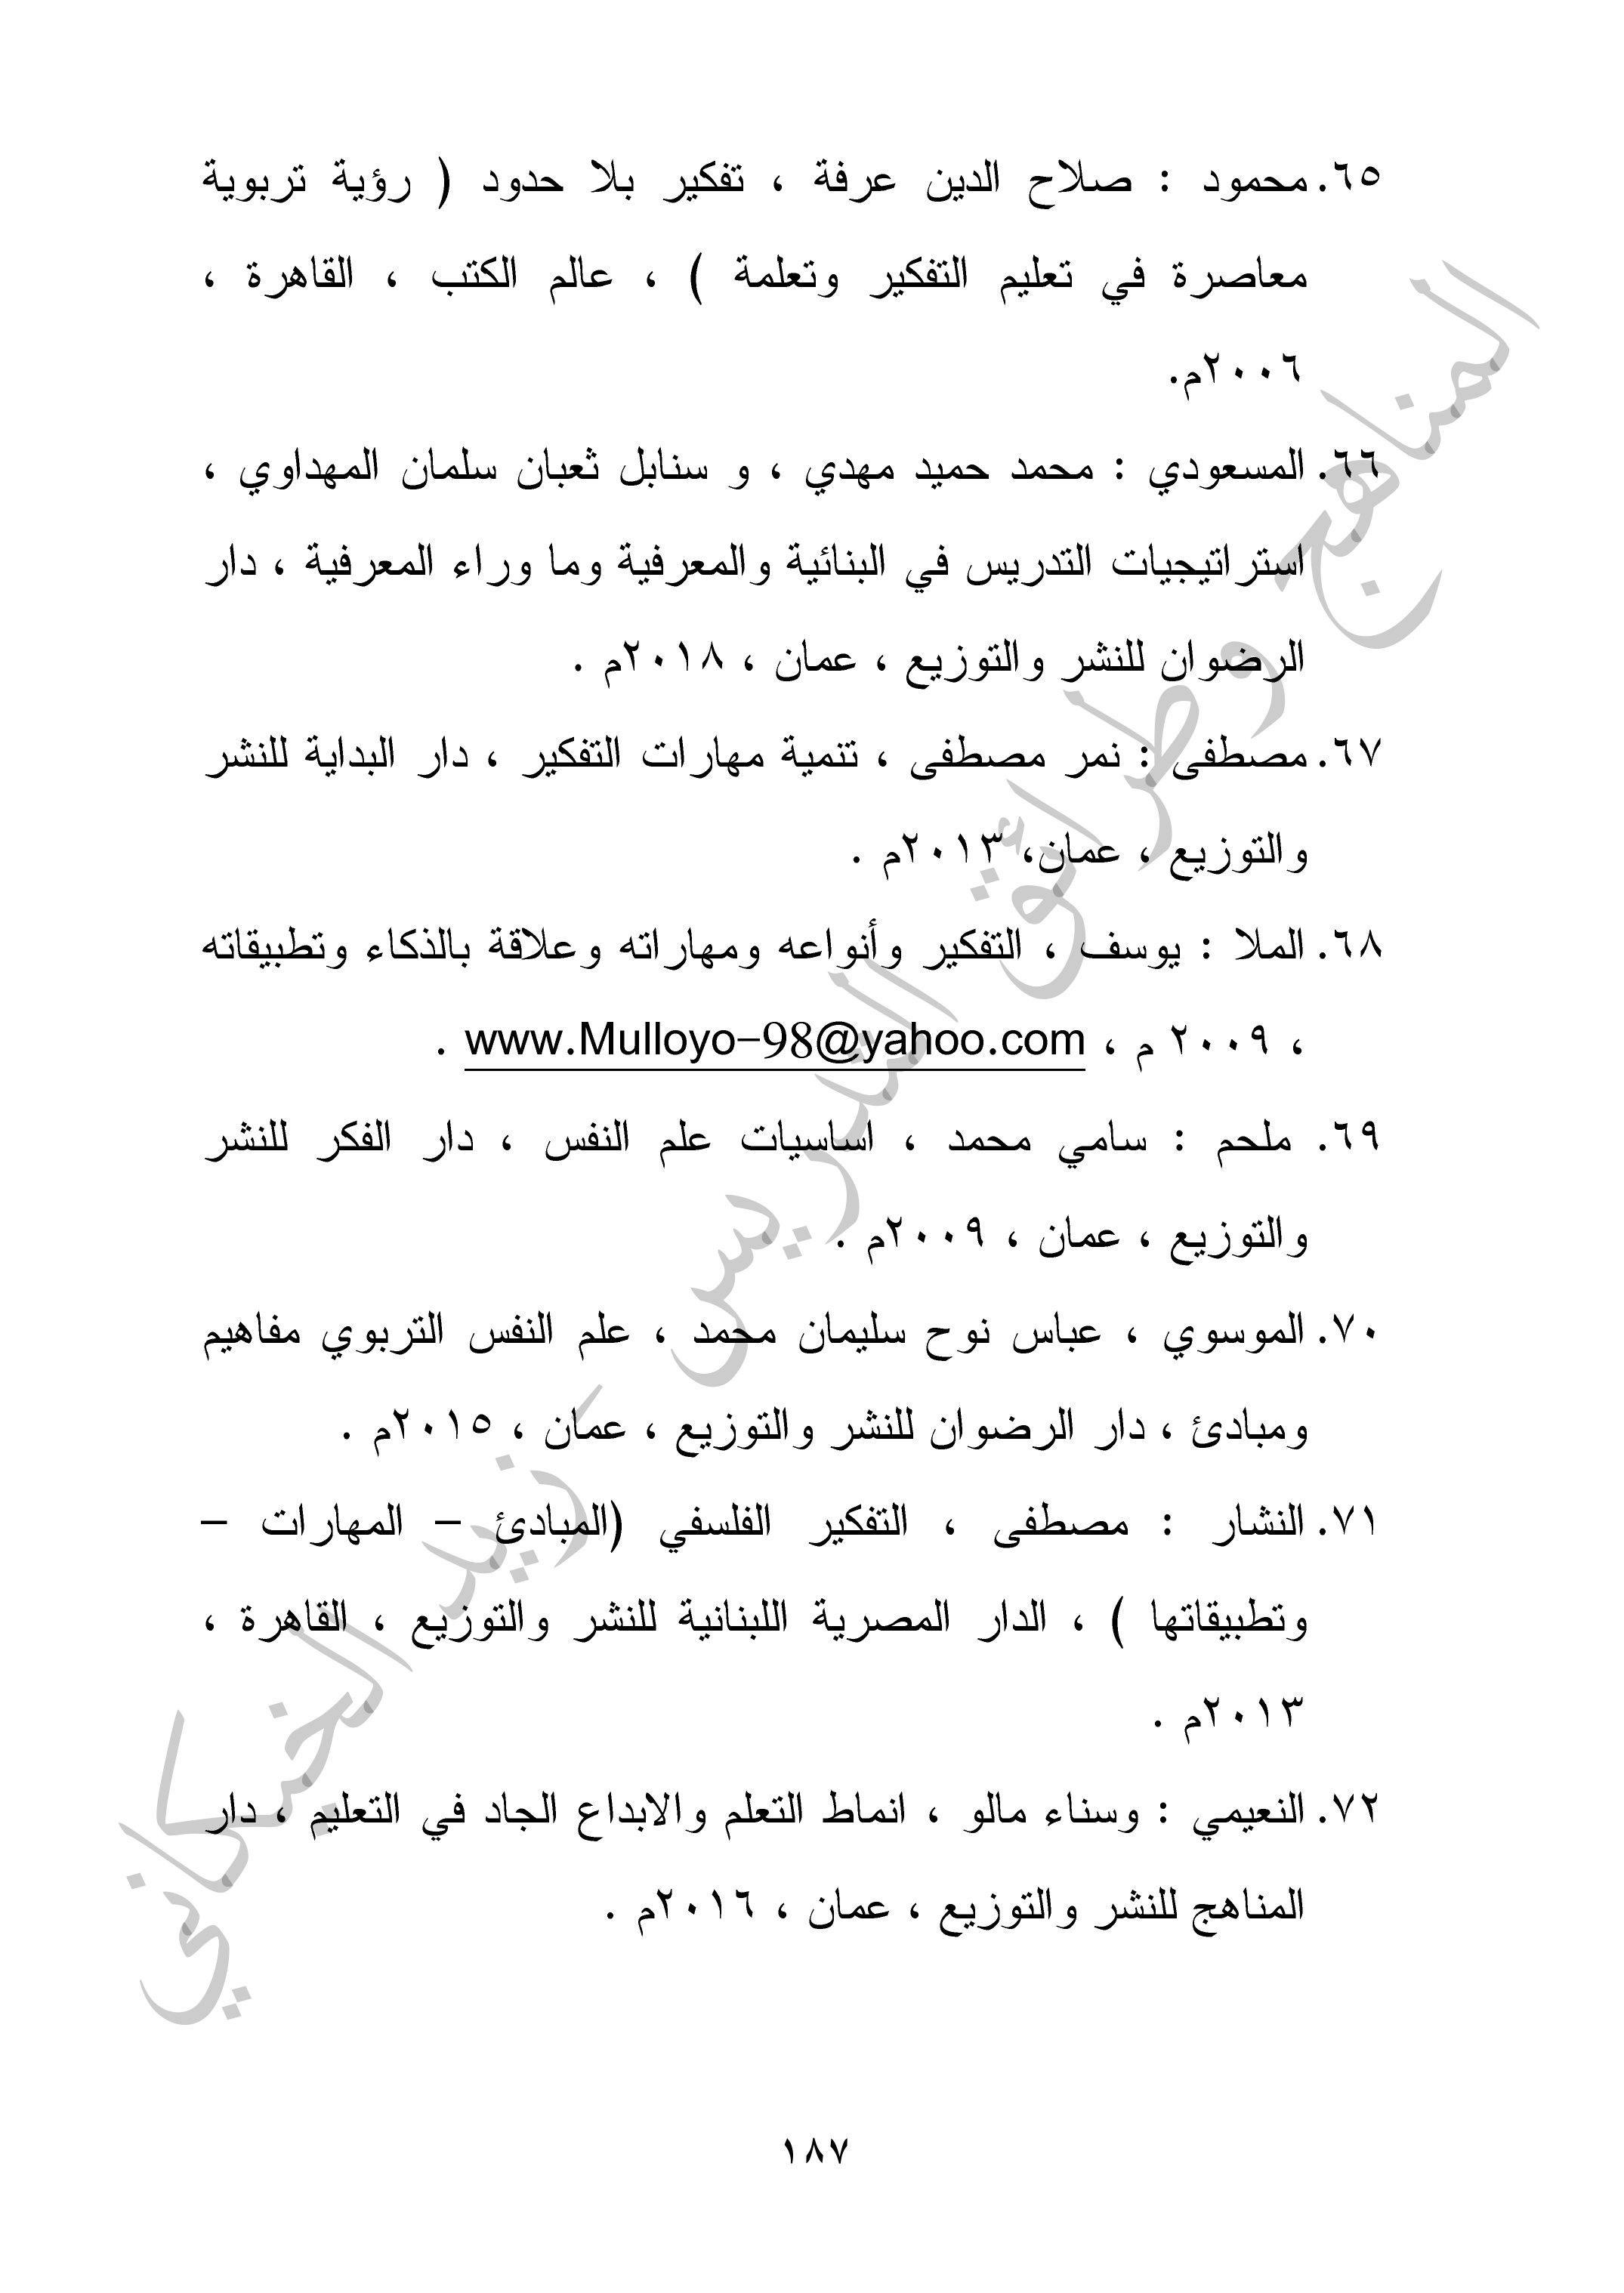 ٦٥. محمود : صلاح الدين عرفة ، تفكير بلا حدود ( رؤية تربوية
معاصرة في تعليم التفكير وتعلمة ) ، عالم الكتب ، القاهرة ،
٢٠٠٦م.
٦٦. المسعودي : محمد حميد مهدي ، و سنابل ثعبان سلمان المهداوي ،
استراتيجيات التدريس في البنائية والمعرفية وما وراء المعرفية ، دار
الرضوان للنشر والتوزيع ، عمان ، ٢٠١٨م .
٦٧. مصطفى : نمر مصطفى ، تنمية مهارات التفكير ، دار البداية للنشر
والتوزيع ، عمان، ٢٠١٣م .
٦٨. الملا : يوسف ، التفكير وأنواعه ومهاراته وعلاقة بالذكاء وتطبيقاته
، ٢٠٠٩ م ، www.Mulloyo-98@yahoo.com .
٦٩. ملحم : سامي محمد ، اساسيات علم النفس ، دار الفكر للنشر
والتوزيع ، عمان ، ٢٠٠٩م .
٧٠. الموسوي ، عباس نوح سليمان محمد ، علم النفس التربوي مفاهيم
ومبادئ ، دار الرضوان للنشر والتوزيع ، عمان ، ٢٠١٥م .
٧١. النشار : مصطفى ، التفكير الفلسفي (المبادئ – المهارات –
وتطبيقاتها ) ، الدار المصرية اللبنانية للنشر والتوزيع ، القاهرة ،
٢٠١٣م .
٧٢. النعيمي : وسناء مالو ، انماط التعلم والابداع الجاد في التعليم ، دار
المناهج للنشر والتوزيع ، عمان ، ٢٠١٦م .
١٨٧
المناهج وطرائق التدريس _ زيد الخيكاني